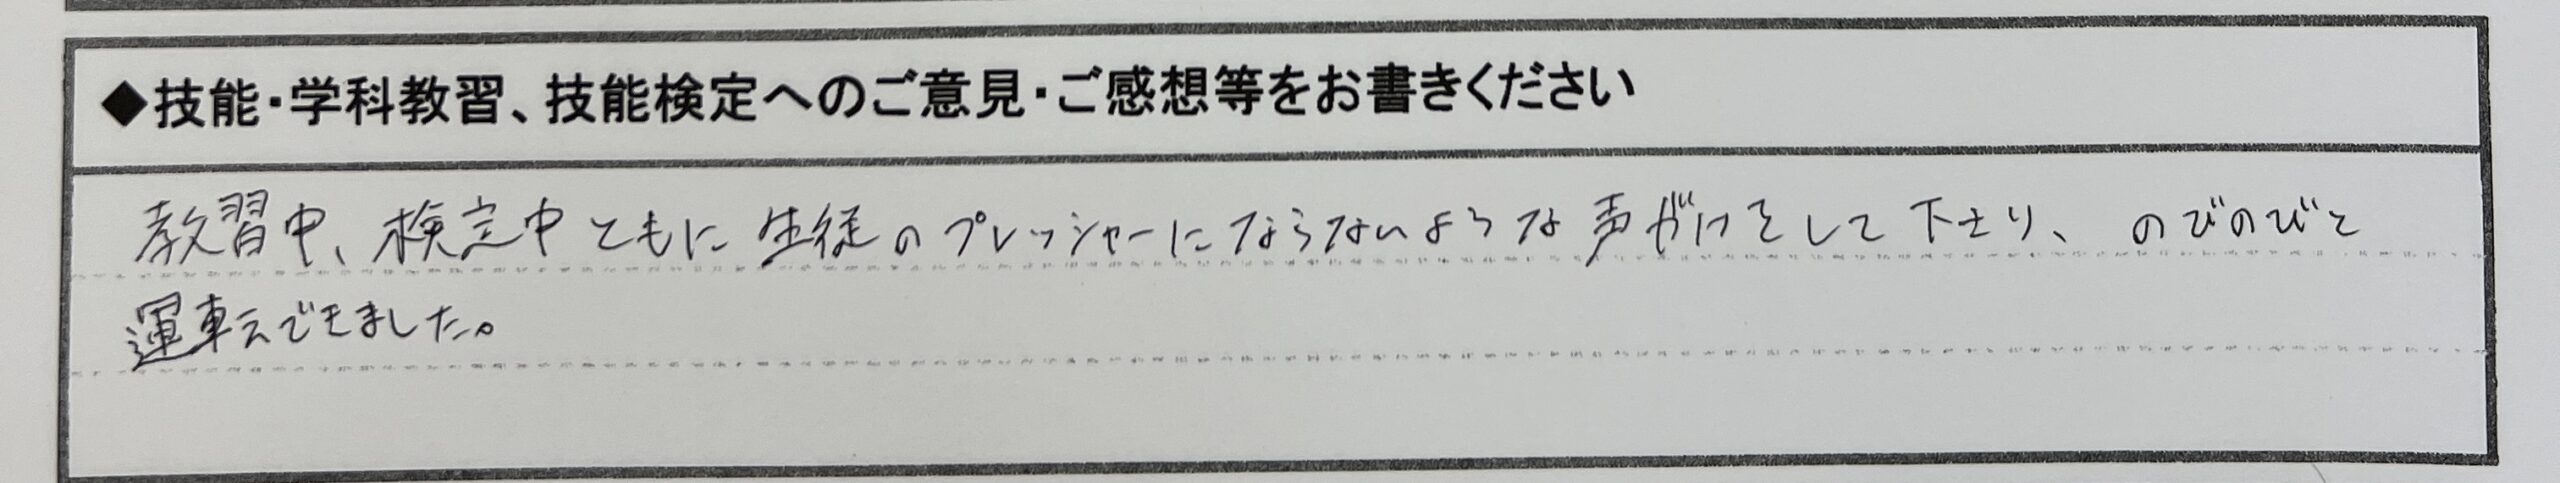 ◆技能・学科教習、技能検定へのご意見・ご感想等をお書きください
教習中、検定中ともに生徒のプレッシャーにならないような声がけをして下さり、のびのびと
運転できました。